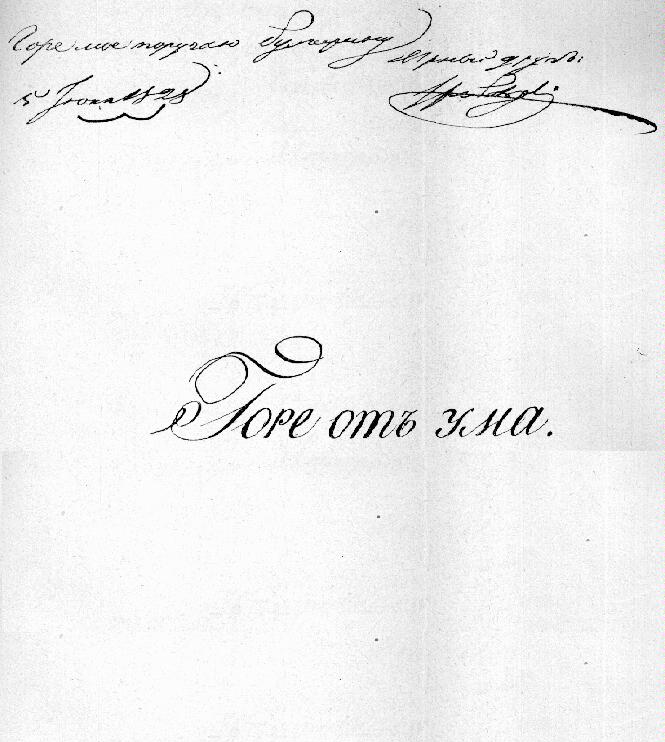 Горе мое поручаю Булгарину. Верный другъ
Грибѣдовъ.
5 Іюня 1828
Горе отъ ума.